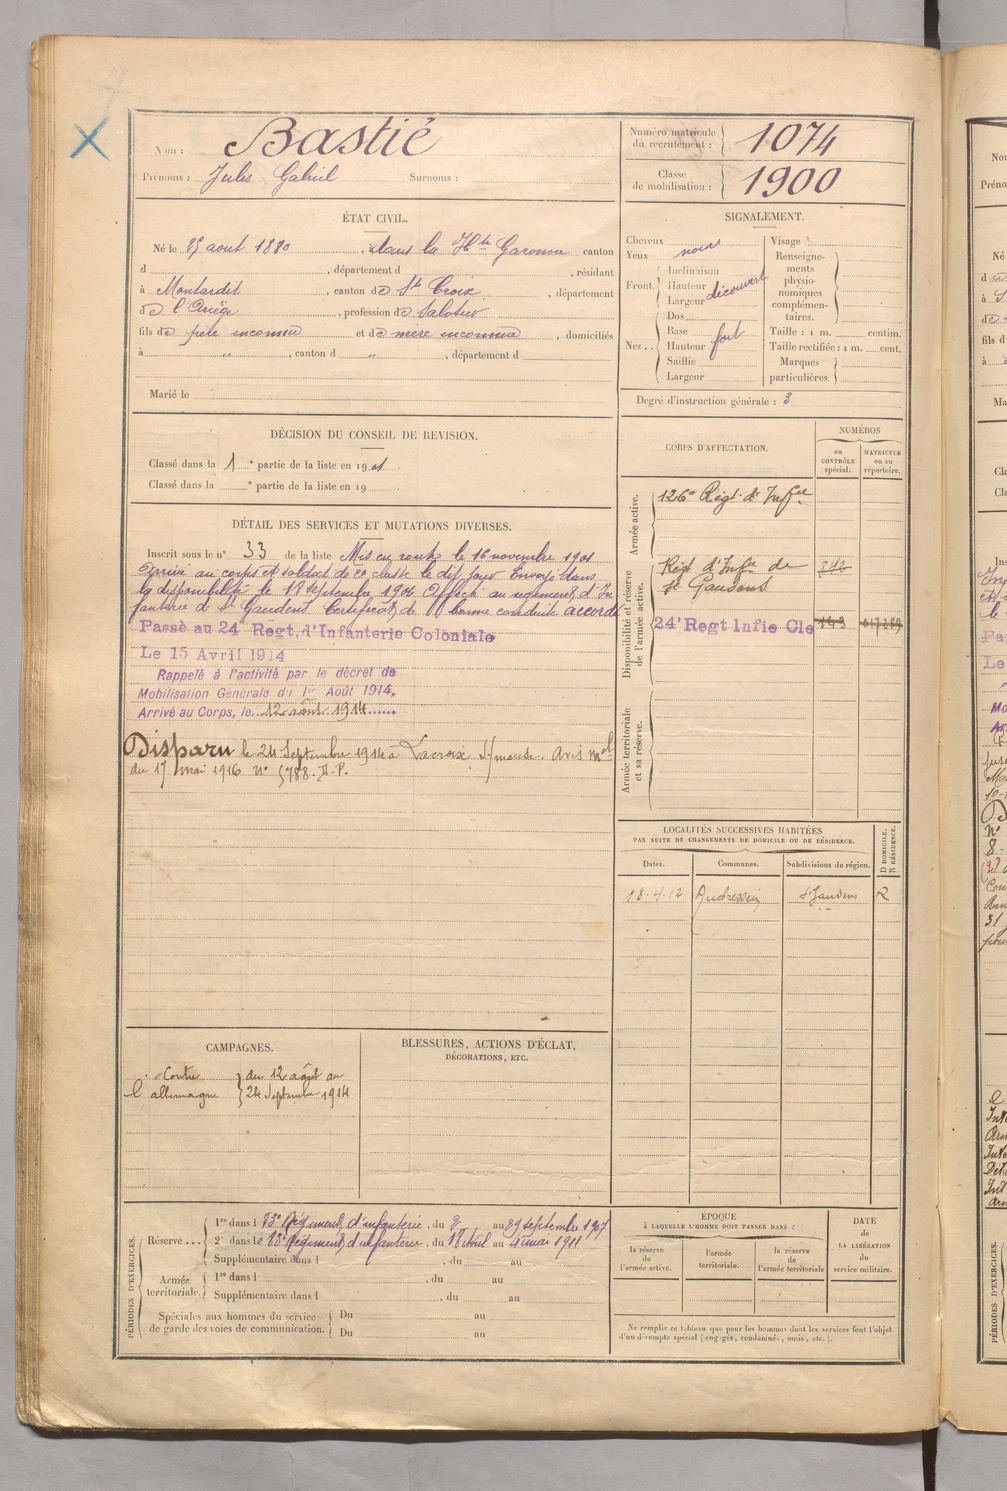 Nom : Bastié
Prénoms : Jules Gabriel Surnoms :
Numéro matricule du recrutement : 1074
Classe de mobilisation : 1900
ÉTAT CIVIL.
Né le 25 aout 1880, dans la Hte Garonne canton
d , département d , résidant
à Montardit , canton de Ste Croix , département
de l'Ariège , profession de Sabotier
fils de père inconnu et de mère inconnue , domiciliés
à " , canton d " , département d
Marié le
SIGNALEMENT.
Cheveux
Yeux noirs
Front. Inclinaison
Hauteur
Largeur découvert
Nez .. Dos
Base
Hauteur fort
Saillie
Largeur
Visage
Renseignements physionomiques complémentaires.
Taille : 1 m. centim.
Taille rectifiée : 1 m. cent.
Marques particulières.
Degré d'instruction générale : 3
DÉCISION DU CONSEIL DE REVISION.
Classé dans la 1 e partie de la liste en 1901
Classé dans la e partie de la liste en 19
DÉTAIL DES SERVICES ET MUTATIONS DIVERSES.
Inscrit sous le n° 33 de la liste Mis en route le 16 novembre 1901
Arrivé au corps et soldat de 2e classe le dit jour Envoyé dans
la disponibilité le 18 septembre 1904 Affecté au régiment d'In
fanterie de St Gaudens Certificat de bonne conduite accordé
Passé au 24 Regt. d'Infanterie Coloniale
Le 15 Avril 1914
Rappelé à l'activité par le décret de
Mobilisation Générale du 1er Août 1914.
Arrivé au Corps, le 12 août 1914
Disparu le 24 Septembre 1914 à Lacroix s/meuse. Avis mel
du 17 mai 1916 N°
CORPS D'AFFECTATION.
NUMÉROS
AU CONTRÔLE spécial.
MATRICULE ou au répertoire.
Armée active.
126e Régt d'Infie
Disponibilité et réserve de l'armée active.
Régt d'Infie de
St Gaudens
24e Regt Infie Cle
Armée territoriale et sa réserve.
LOCALITÉS SUCCESSIVES HABITÉES
PAR SUITE DE CHANGEMENTS DE DOMICILE OU DE RÉSIDENCE.
Dates. Communes. Subdivisions de région. D DOMICILE. R RÉSIDENCE.
18.4.12 St Gaudens R
CAMPAGNES.
Contre l'allemagne du 12 août au
24 Septembre 1914
BLESSURES, ACTIONS D'ÉCLAT,
DÉCORATIONS, ETC.
PÉRIODES D'EXERCICES.
Réserve ... 1re dans l Régiment d'infanterie , du au 29 septembre 1907
2e dans le Régiment d'infanterie , du Avril au 4 mai 1911
Supplémentaire dans l , du au
Armée territoriale. 1re dans l , du au
Supplémentaire dans l , du au
Spéciales aux hommes du service Du au
de garde des voies de communication. Du au
EPOQUE
À LAQUELLE L'HOMME DOIT PASSER DANS :
la réserve de l'armée active.
l'armée territoriale.
la réserve de l'armée territoriale
DATE
de
LA LIBÉRATION
du
service militaire.
Ne remplir ce tableau que pour les hommes dont les services font l'objet
d'un décompte spécial (engagés, condamnés, omis, etc.).